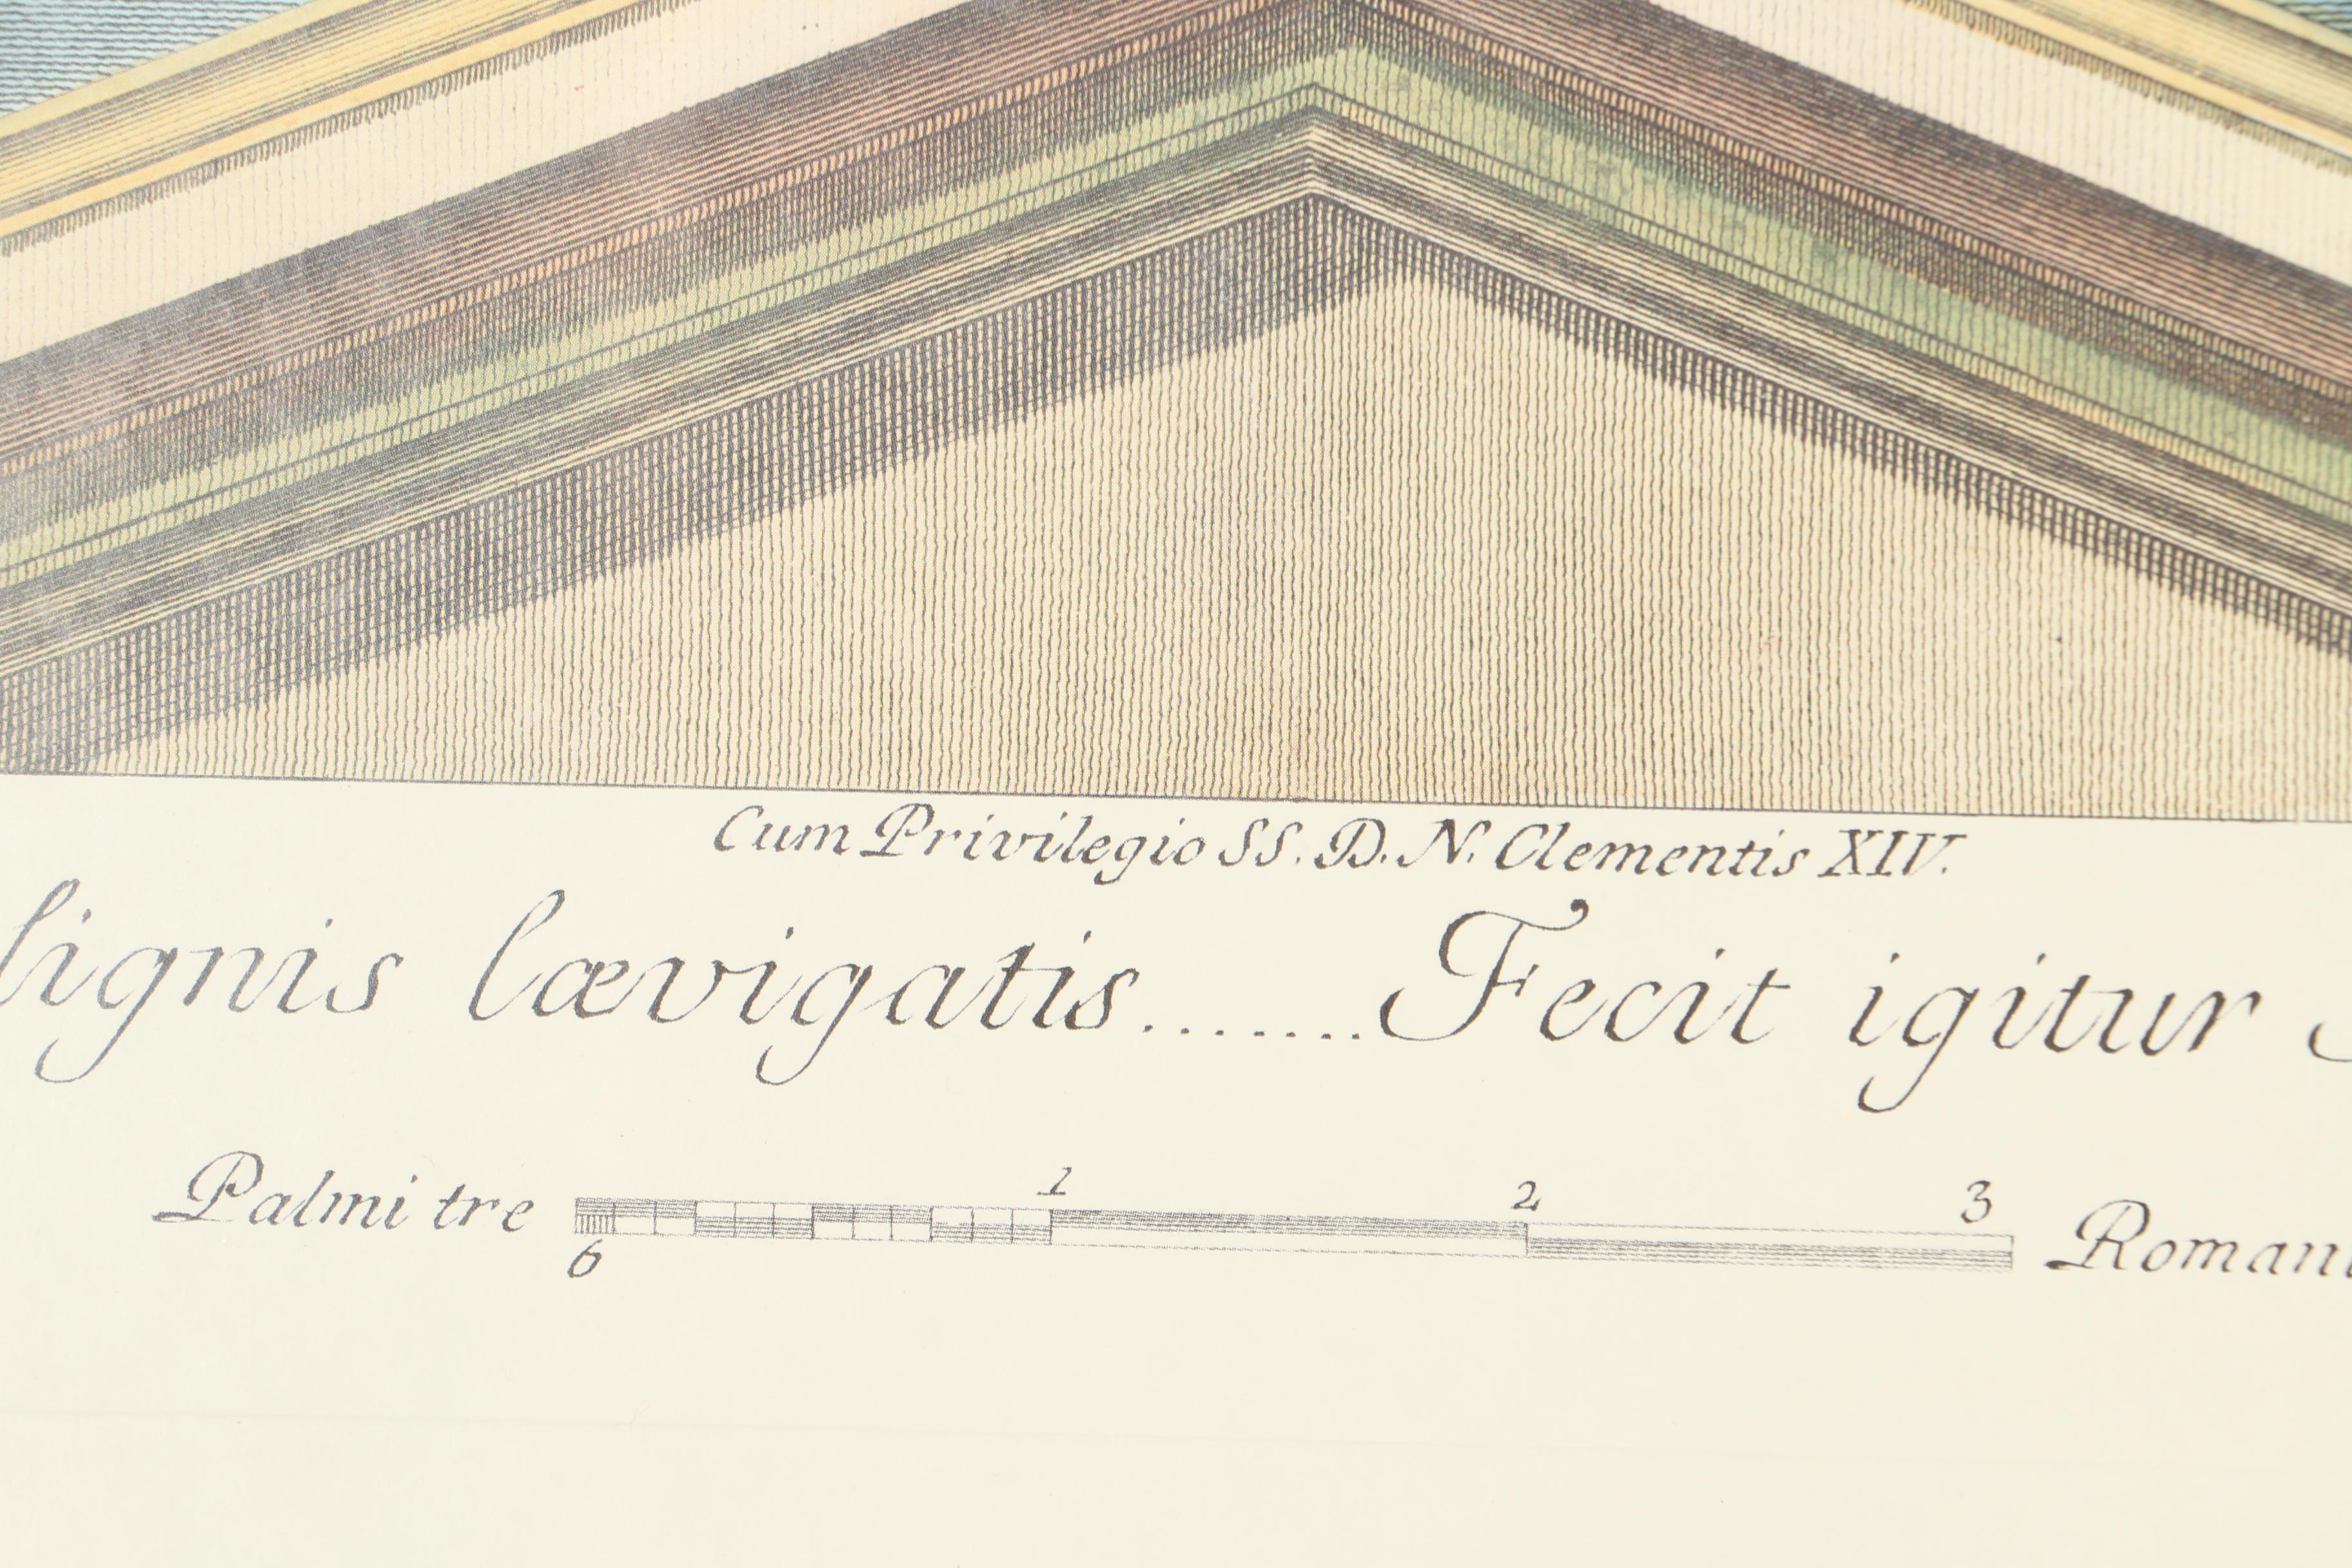 Cum Privilegio SS. D. N. Clementis XIV.
lignis lævigatis........Fecit igitur
1 2 3
Palmi tre Romani
6